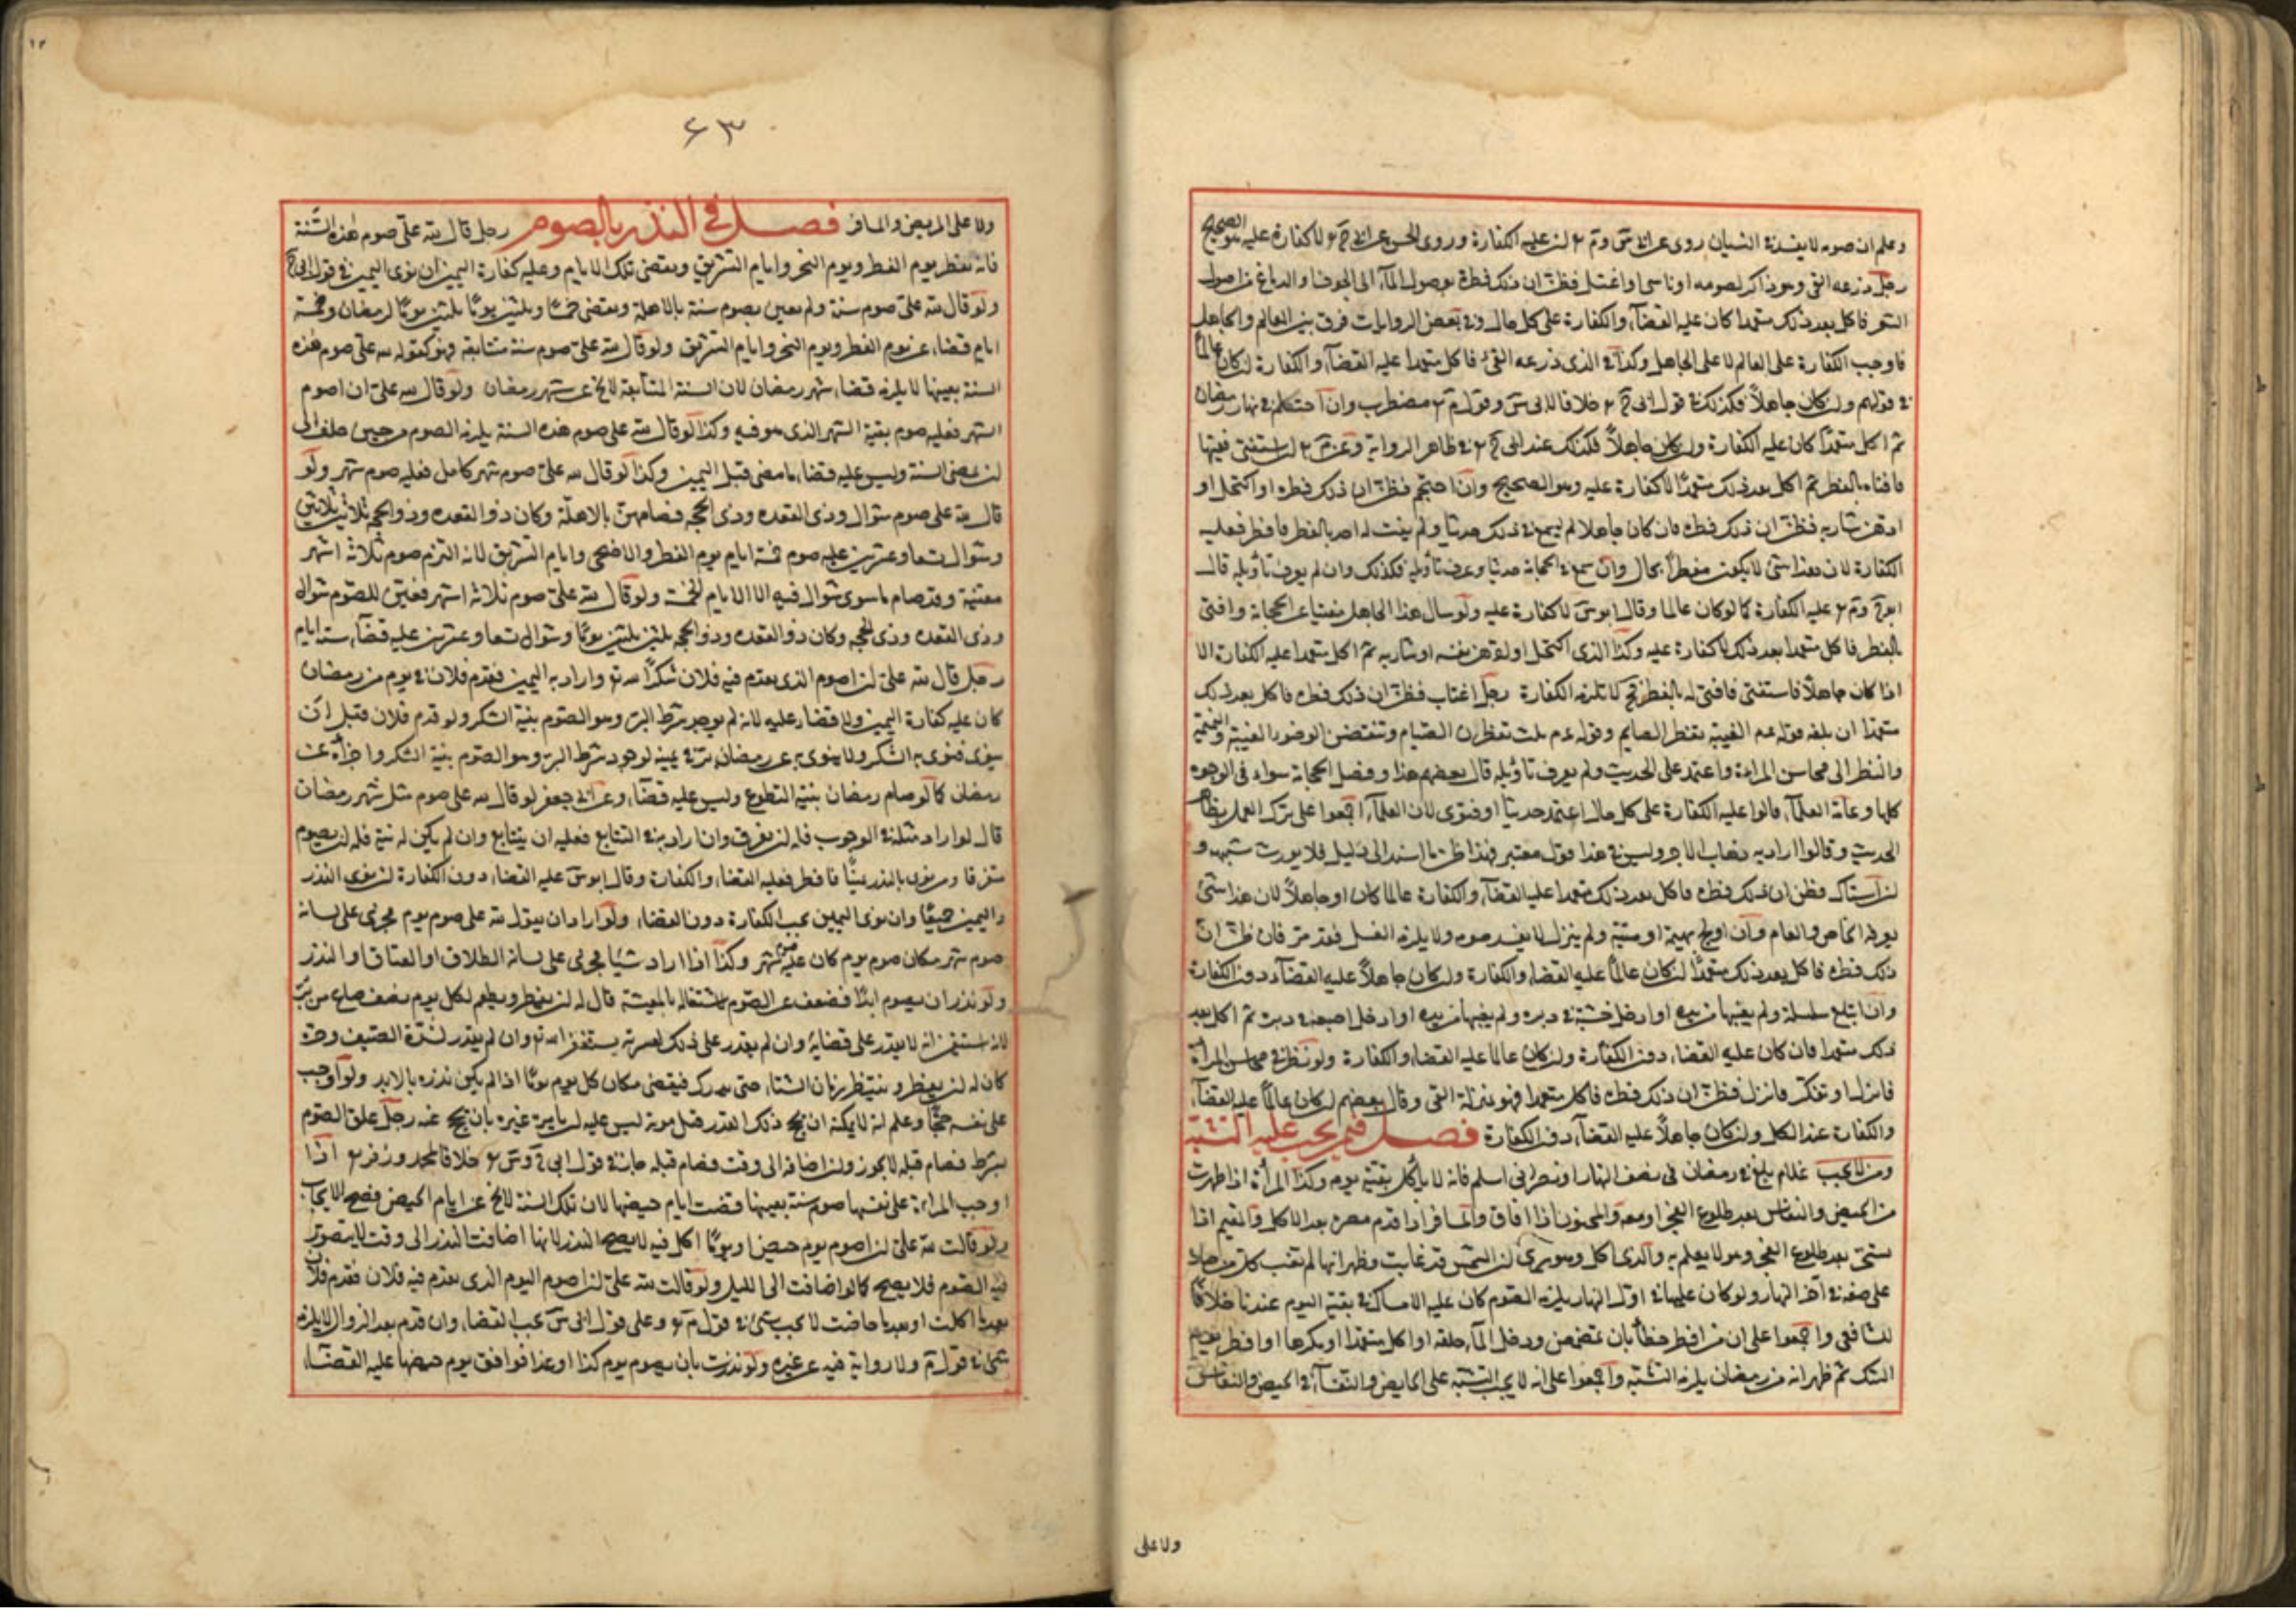 وعلم ان صومه لا يفسد النسيان روى عن ابى س و م ان عليه الكفارة وروى الحسن عن ابى ح لا كفارة عليه هو الصحيح
رجل ذرعه القئ وهو ذاكر لصومه او ناسى او اغتسل فظن ان ذلك فطره بوصول الماء الى الجوف والدماغ من اصول
الشعر فاكل بعد ذلك متعمدا كان عليه القضآء والكفارة على كل حال وفى بعض الروايات فرق بين العالم والجاهل
فاوجب الكفارة على العالم لا على الجاهل وكذا فى الذى ذرعه القئ فاكل متعمدا عليه القضآء والكفارة ان كان عالما
فى قولهم وان كان جاهلاً فكذلك فى قول ابى ح خلافا لابى س وقول م مضطرب وان احتلم فى نهار رمضان
ثم اكل متعمداً كان عليه الكفارة وان كان جاهلاً فكذلك عند ابى ح فى ظاهر الرواية وعن م ان استفتى فقيها
فافتاه بالفطر ثم اكل بعد ذلك متعمداً لا كفارة عليه وهو الصحيح وان احتجم فظن ان ذلك فطره او اكتحل او
ادهن شاربه فظن ان ذلك فطره فان كان جاهلا لم يسمع فى ذلك حديثا ولم يفت له احد بالفطر فافطر فعليه
الكفارة لان هذا شئ لا يكون مفطراً بحال وان سمع فى الحجامة حديثا وعرف تأويله فكذلك وان لم يعرف تأويله قال
ابو ح و م عليه الكفارة كما لو كان عالما وقال ابو س لا كفارة عليه ولو سال هذا الجاهل مفتيا عن الحجامة وافتى
بالفطر فاكل متعمدا بعد ذلك لا كفارة عليه وكذا الذى اكتحل او دهن نفسه او شاربه ثم اكل متعمدا عليه الكفارة الا
اذا كان جاهلاً فاستفتى فافتى له بالفطر فح لا تلزمه الكفارة رجل اغتاب فظن ان ذلك فطره فاكل بعد ذلك
متعمدا ان بلغه قوله عم الغيبة تفطر الصايم وقوله عم ثلث تفطرن الصيام وتنقضن الوضوء الغيبة والنميمة
والنظر الى محاسن المراءة واعتمد على الحديث ولم يعرف تأويله قال بعضهم هذا وفصل الحجامة سواء فى الوجوه
كلها وعامة العلمآء قالوا عليه الكفارة على كل حال اعتمد حديثا او فتوى لان العلمآء اجمعوا على ترك العمل بظاهر
الحديث وقالوا اراد به ذهاب الاجر وليس فى هذا قول معتبر فهذا ظن ما استند الى دليل فلا يورث شبهه و
ان استاك فظن ان ذلك فطره فاكل بعد ذلك متعمدا عليه القضآء والكفارة عالما كان او جاهلاً لان هذا شئ
يعرفه الخاص والعام وان اولج بهيمة او ميتة ولم ينزل لا يفسد صومه ولا يلزمه الغسل فقد مر فان ظن ان
ذلك فطره فاكل بعد ذلك متعمدًا ان كان عالماً عليه القضاء والكفارة وان كان جاهلاً عليه القضآء دون الكفارة
وان ابتلع سلسلة ولم يغيبها من يده او ادخل خشبة فى دبره ولم يغيبها من يده او ادخل اصبعه فى دبره ثم اكل بعد
ذلك متعمدا فان كان عليه القضاء دون الكفارة وان كان عالما عليه القضاء والكفارة ولو نظر فى محاسن المرأة
فانزل او تفكر فانزل فظن ان ذلك فطره فاكل متعمدا فهو بمنزلة القئ وقال بعضهم ان كان عالماً عليه القضآء
والكفارة عند الكل وان كان جاهلاً عليه القضآء دون الكفارة فصل فيمن يجب عليه التشبه
ومن لا يجب غلام بلغ فى رمضان فى نصف النهار او نصرانى اسلم فانه لا يأكل بقية يوم وكذا المرأة اذا طهرت
من الحيض والنفاس بعد طلوع الفجر او معه والمجنون اذا افاق والمسافر اذا قدم مصره بعد الاكل والمقيم اذا
تسحر بعد طلوع الفجر وهو لا يعلم به والذى اكل وهو يرى ان الشمس قد غابت وظهر انها لم تغب كل من صار
على صفة فى آخر النهار ولو كان عليها فى اول النهار يلزمه الصوم كان عليه الامساك فى بقية اليوم عندنا خلافاً
للشافعى واجمعوا على ان من افطر خطأ بان تمضمض ودخل المآء حلقه او اكل متعمدا او مكرها او افطر يوم
الشك ثم ظهر انه من رمضان يلزمه التشبه واجمعوا على انه لا يجب التشبه على الحايض والنفسآء فى الحيض والنفاس
ولا على
٦٣
ولا على المريض والمسافر فصل فى النذر بالصوم رجل قال لله على صوم هذه السنة
فانه يفطر يوم الفطر ويوم النحر وايام التشريق ويقضى تلك الايام وعليه كفارة اليمين ان نوى اليمين فى قول ابى ح
ولو قال لله على صوم سنة ولم يعين يصوم سنة بالاهلة ويقضى خمسًا وثلثين يومًا ثلثين يومًا لرمضان وخمسة
ايام قضاء عن يوم الفطر ويوم النحر وايام التشريق ولو قال لله على صوم سنة متتابعة فهو كقوله لله على صوم هذه
السنة بعينها لا يلزمه قضاء شهر رمضان لان السنة المتتابعة لا تخ عن شهر رمضان ولو قال لله على ان اصوم
الشهر فعليه صوم بقية الشهر الذى هو فيه وكذا لو قال لله على صوم هذه السنة يلزمه الصوم من حين حلف الى
ان تمضى السنة وليس عليه قضاء ما مضى قبل اليمين وكذا لو قال لله على صوم شهر كامل فعليه صوم شهر ولو
قال لله على صوم شوال وذى القعده وذى الحجه فصامهن بالاهلة وكان ذو القعده وذو الحجه ثلاثين ثلاثين
وشوال تسعا وعشرين عليه صوم خمسة ايام يوم الفطر والاضحى وايام التشريق لانه التزم صوم ثلاثة اشهر
معينة وقد صام ما سوى شوال فيه الا الايام الخمسة ولو قال لله على صوم ثلاثة اشهر فعين للصوم شوال
وذى القعده وذى الحجه وكان ذو القعده وذو الحجه ثلثين ثلثين يومًا وشوال تسعا وعشرين عليه قضآء ستة ايام
رجل قال لله على ان اصوم الذى يقدم فيه فلان شكرًا لله تع واراد به اليمين فقدم فلان فى يوم من رمضان
كان عليه كفارة اليمين ولا قضاء عليه لانه لم يوجد شرط البر وهو الصوم بنية الشكر ولو قدم فلان قبل ان
ينوى فنوى به الشكر ولا ينوى به عن رمضان بر فى يمينه لوجود شرط البر وهو الصوم بنية الشكر واجزأه عن
رمضان كما لو صام رمضان بنية التطوع وليس عليه قضآء وعن ابى جعفر لو قال لله على صوم مثل شهر رمضان
قال لو اراد مثله فى الوجوب فله ان يفرق وان اراد به فى التتابع فعليه ان يتتابع وان لم يكن له نية فله ان يصوم
متفرقا ومن نوى بالنذر يمينًا فافطر فعليه القضاء والكفارة وقال ابو س عليه القضاء دون الكفارة ان نوى النذر
واليمين جميعًا وان نوى اليمين يجب الكفارة دون القضاء ولو اراد ان يقول لله على صوم يوم فجرى على لسانه
صوم شهر مكان صوم يوم كان عليه صوم شهر وكذا اذا اراد شيئا فجرى على لسانه الطلاق او العتاق او النذر
ولو نذر ان يصوم ابدًا فضعف عن الصوم لاشتغاله بالمعيشة قال له ان يفطر ويطعم لكل يوم نصف صاع من بر
لانه استيقن انه لا يقدر على قضائه وان لم يقدر على ذلك لعسرته يستغفر الله تع وان لم يقدر لشدة الصيف وحره
كان له ان يفطر وينتظر زمان الشتاء حتى يدرك فيقضى مكان كل يوم يومًا اذا لم يكن نذره بالابد ولو اوجب
على نفسه حججًا وعلم انه لا يمكنه ان يحج ذلك القدر قبل موته ليس عليه ان يامر غيره بان يحج عنه رجل علق الصوم
بشرط فصام قبله لا يجوز وان اضافه الى وقت فصام قبله جاز فى قول ابى ح و س خلافا لمحمد وزفر اذا
اوجب المراءة على نفسها صوم سنة بعينها قضت ايام حيضها لان تلك السنة لا تخ عن ايام الحيض فصح الايجاب
ولو قالت لله على ان اصوم يوم حيضى او يومًا اكل فيه لا يصح النذر لانها اضافت النذر الى وقت لا يتصور
فيه الصوم فلا يصح كما لو اضافت الى الليل ولو قالت لله على ان اصوم اليوم الذى يقدم فيه فلان فقدم فلان
بعد ما اكلت او بعد ما حاضت لا يجب شئ فى قول م وعلى قول ابى س يجب القضاء وان قدم بعد الزوال لا يلزمه
شئ فى قول م ولا رواية فيه عن غيره ولو نذرت بان يصوم يوم كذا او غدا فوافق يوم حيضها عليه القضآء